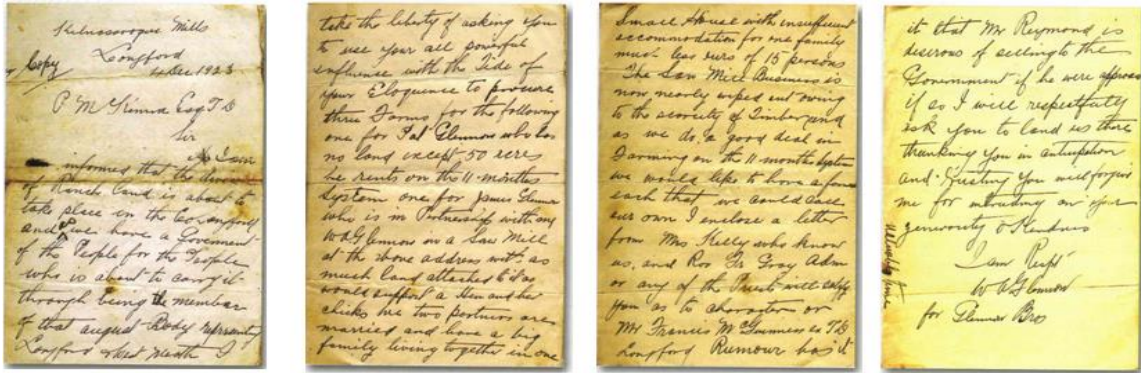 Mills
Longford
Copy
4 Dec 1923
P McKenna Esq TD
Sir
As I am
informed that the division
of Ranch land is about to
take place in the
and we have a Goverment
of the People for the People
who is about to carry it
through being the member
of that august Body representing
Longford West Meath I
take the liberty of asking you
to use your all powerful
influence with the Tide of
your Eloquence to procure
three Farms for the following
one for Pat Glennon who has
no land except 50 acres
he rents on the 11 months
System one for James Glennon
who is in Partnership with me
W A Glennon in a Saw Mill
at the above address with as
much land attached to it as
would support a Hen and her
chicks we two partners are
married and have a big
family living together in one
Small House with insufficient
accommodation for one family
much less ours of 15 persons
The Saw Mill Business is
now nearly wiped out owing
to the scarcity of Timber and
as we do a good deal in
Farming on the 11 month System
we would like to have a farm
each that we could call
our own I enclose a letter
from Mrs Kelly who know
us, and Rev Fr Gray Adm
or any of the Priests will satisfy
you as to characters or
Mr Francis McGuinness TD
Longford Rumour has it
it that Mr Reymond is
desirous of selling to the
Government if he were approached
if so I will respectfully
ask you to land us there
thanking you in anticipation
and trusting you will forgive
me for intruding on your
generosity & Kindness
I am Respt
W A Glennon
for Glennon Bros